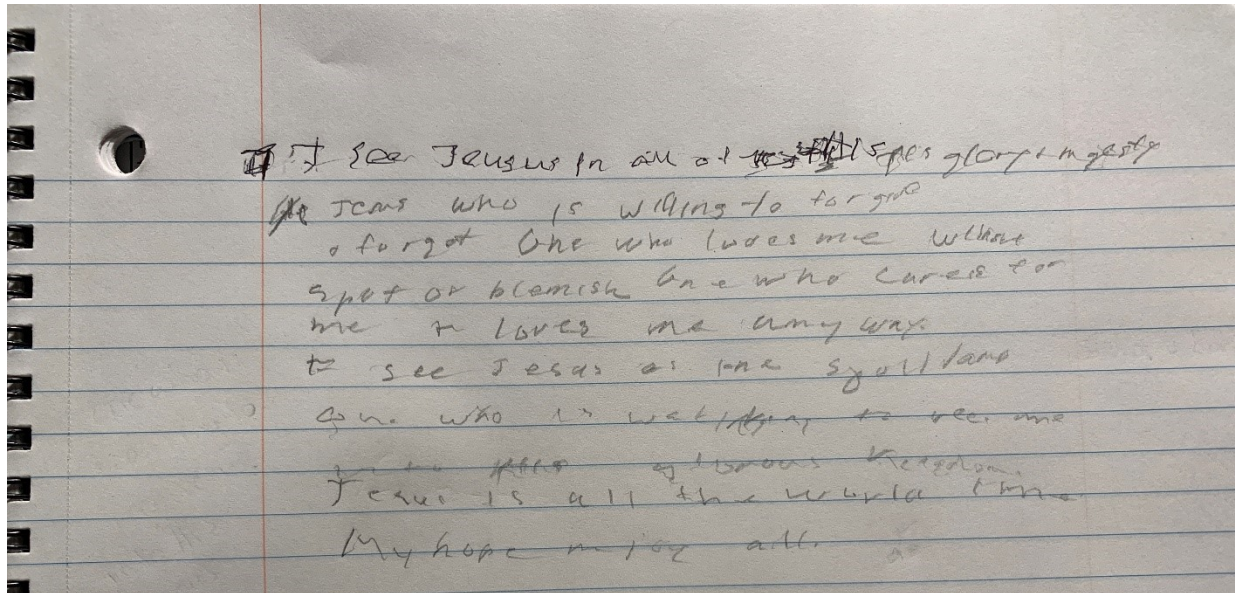 I see Jeusus in all of his glory + mgesty
Jesus who is willing to forgive
forgot One who loves me without
spot or blemish One who cares for
me + loves me anyway.
I see Jesus as the
One who is to see me
into glorious Kingdom.
Jesus is all the world
My hope my joy all.